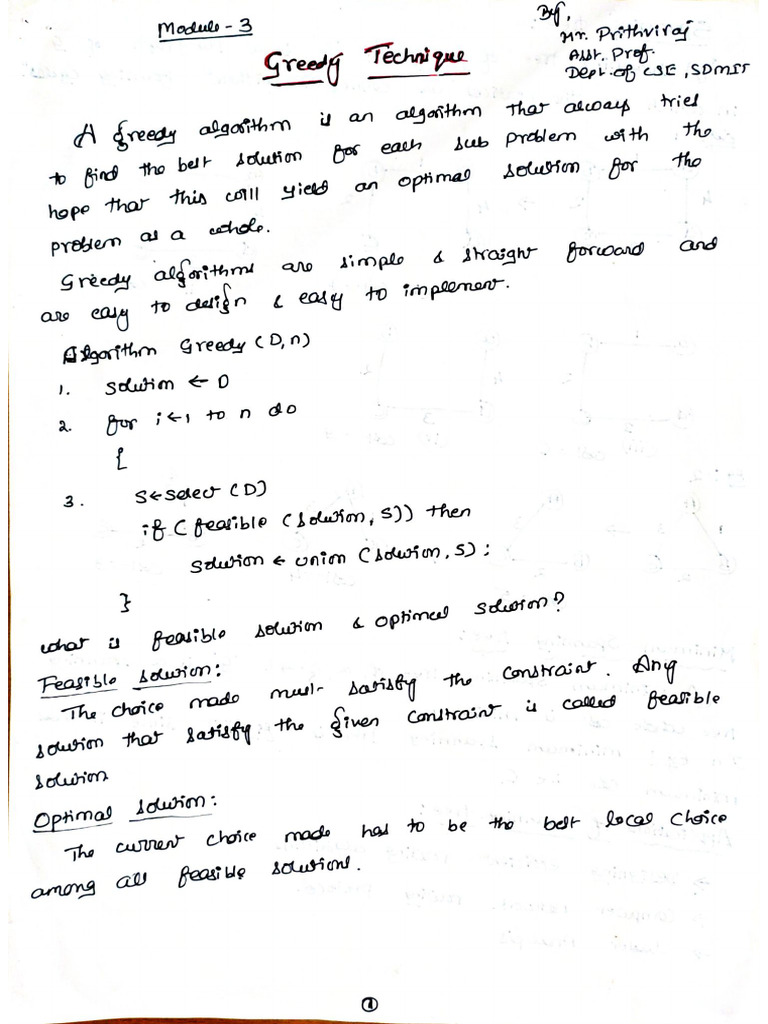 Module - 3
By,
Mr. Prithviraj
Asst. Prof.
Dept. of CSE, SDMIT
Greedy Technique
A greedy algorithm is an algorithm that always tries
to find the best solution for each sub problem with the
hope that this will yield an optimal solution for the
problem as a whole.
Greedy algorithms are simple & straight forward and
are easy to design & easy to implement.
Algorithm Greedy (D,n)
1. Solution ← D
2. for i←1 to n do
{
3. S←select (D)
if ( feasible (solution, S)) then
solution ← union (solution, S) ;
}
what is feasible solution & optimal solution?
Feasible solution:
The choice made must satisfy the constraint. Any
solution that satisfy the given constraint is called feasible
solution
Optimal solution:
The current choice made has to be the best local choice
among all feasible solutions.
1